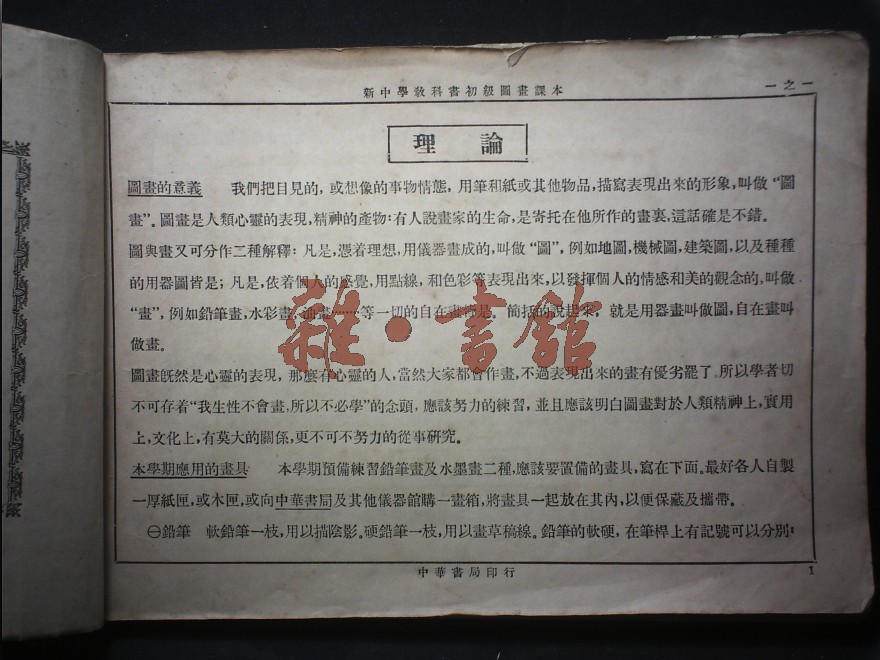 新中學教科書初級圖畫課本
一之一
理論
圖畫的意義　我們把目見的，或想像的事物情態，用筆和紙或其他物品，描寫表現出來的形象，叫做“圖
畫”。圖畫是人類心靈的表現，精神的產物：有人說畫家的生命，是寄托在他所作的畫裏，這話確是不錯。
圖與畫又可分作二種解釋：凡是，憑着理想，用儀器畫成的，叫做“圖”，例如地圖，機械圖，建築圖，以及種種
的用器圖皆是；凡是，依着個人的感覺，用點線，和色彩等表現出來，以發揮個人的情感和美的觀念的，叫做
“畫”，例如鉛筆畫，水彩畫，油畫……等一切的自在畫皆是。簡括的說起來，就是用器畫叫做圖，自在畫叫
做畫。
圖畫旣然是心靈的表現，那麼有心靈的人，當然大家都會作畫，不過表現出來的畫有優劣罷了。所以學者切
不可存着“我生性不會畫，所以不必學”的念頭，應該努力的練習，並且應該明白圖畫對於人類精神上，實用
上，文化上，有莫大的關係，更不可不努力的從事研究。
本學期應用的畫具　本學期預備練習鉛筆畫及水墨畫二種，應該要置備的畫具，寫在下面。最好各人自製
一厚紙匣，或木匣，或向中華書局及其他儀器館購一畫箱，將畫具一起放在其內，以便保藏及攜帶。
㊀鉛筆　軟鉛筆一枝，用以描陰影。硬鉛筆一枝，用以畫草稿線。鉛筆的軟硬，在筆桿上有記號可以分別：
中華書局印行
1
雜·書館